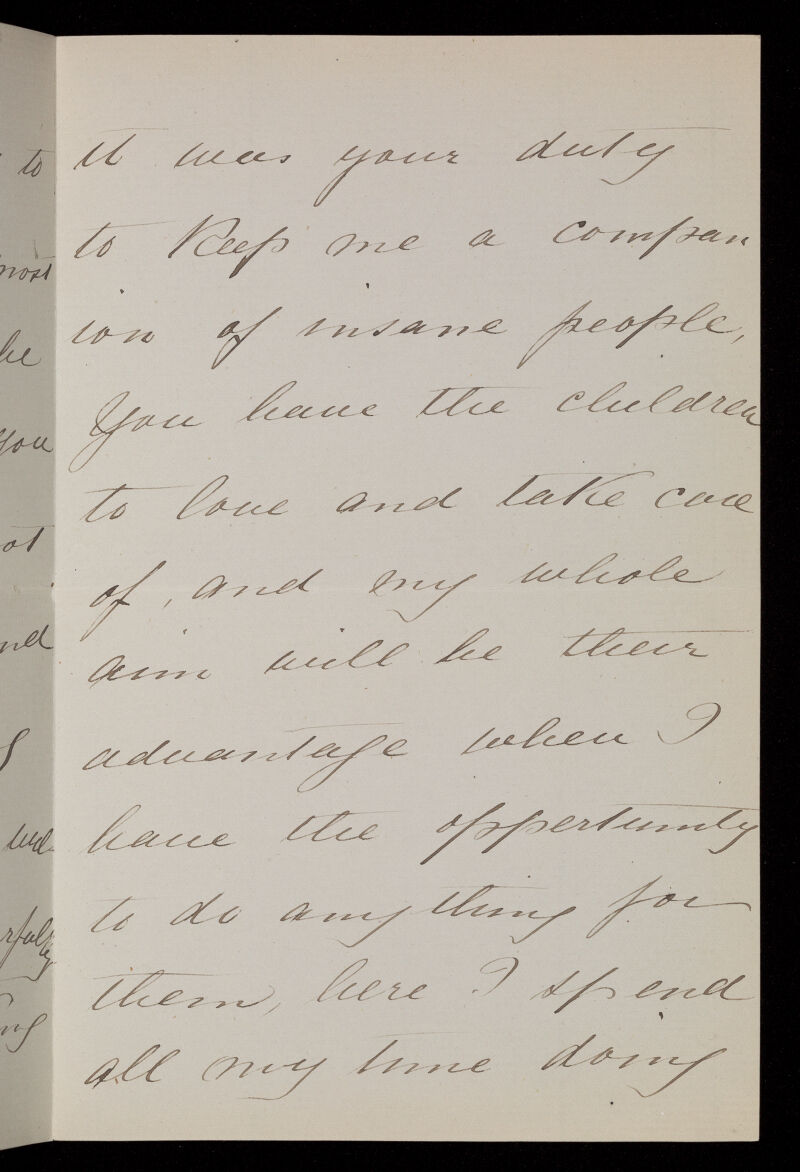 it was your duty
to Keep me a compan
ion of insane people,
You have the children
to love and take care
of, and my whole
aim will be their
advantage when I
have the oppertunity
to do any thing for
them, here I spend
all my time doing
to
most
be
you
ot
nd